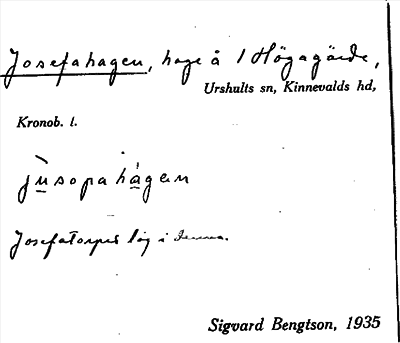 Josefahagen, hage å 1 Högagärde,
Urshults sn, Kinnevalds hd,
Kronob. l.
jùsopahágen
Josefatorpet låg i denna.
Sigvard Bengtson, 1935